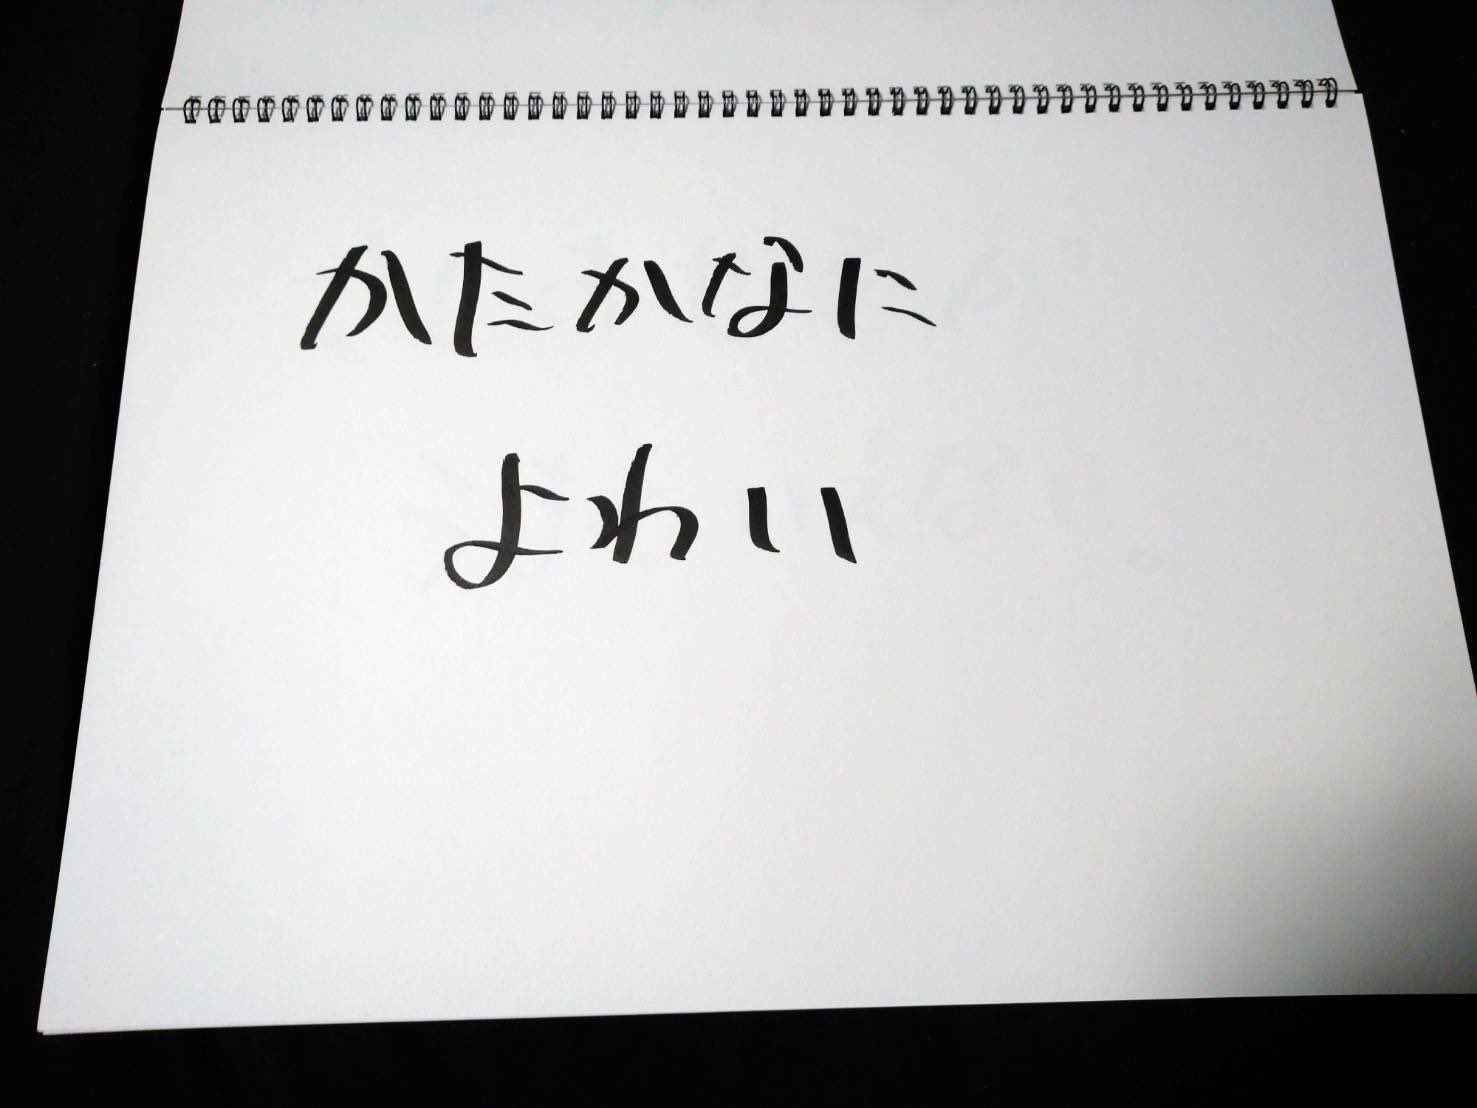 かたかなに
よわい